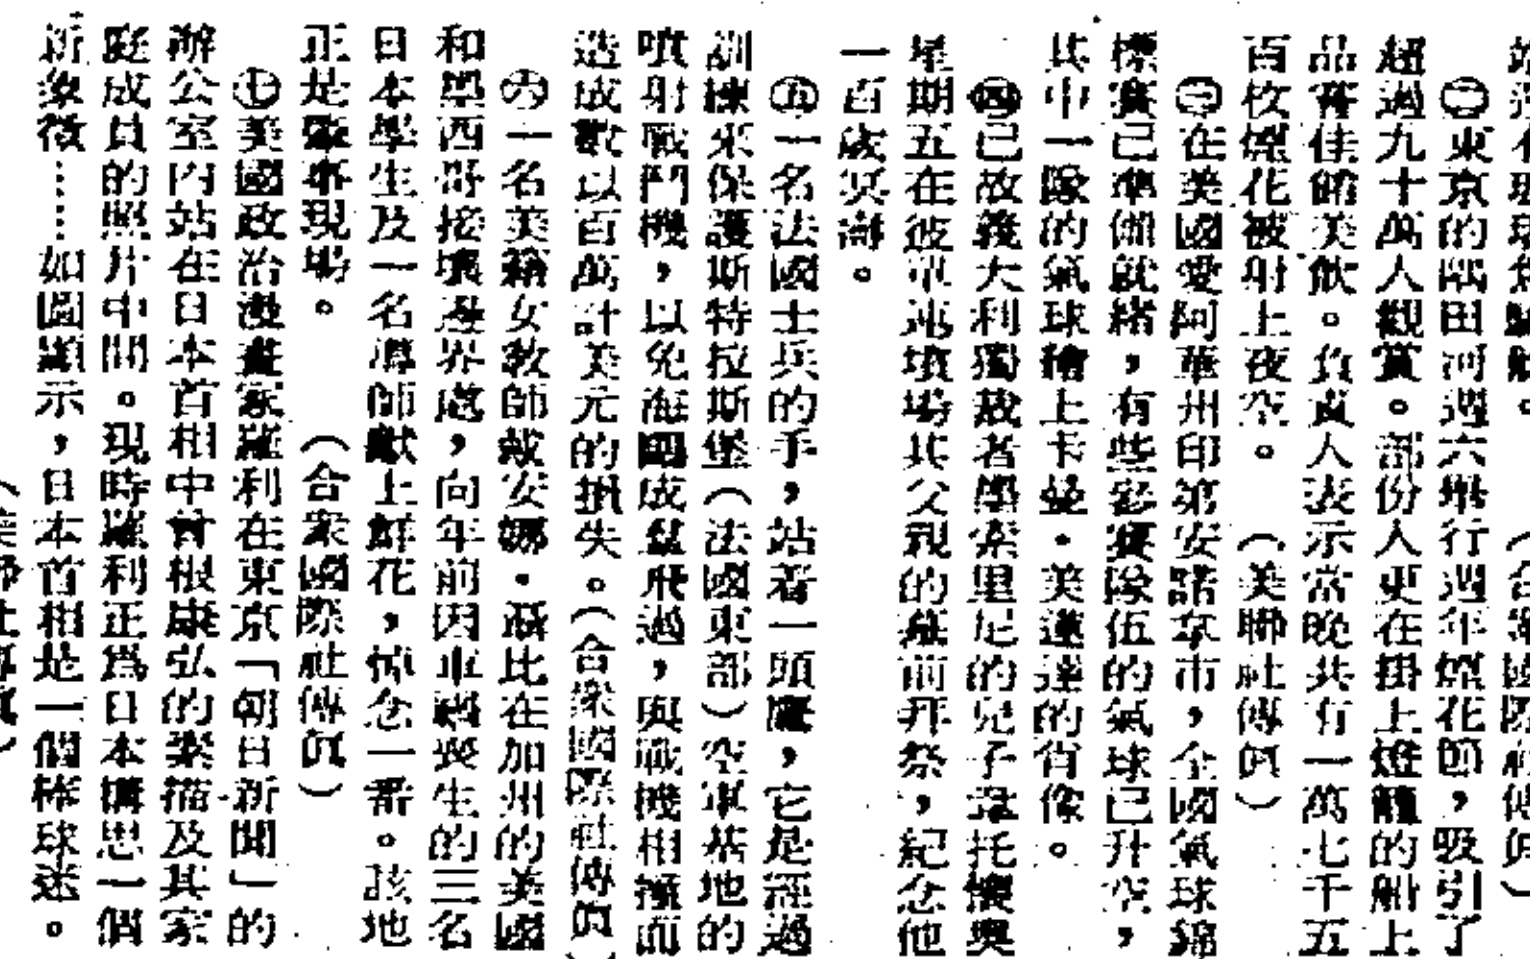 ㊁東京的隅田河週六舉行週年煙花節，吸引了
超過九十萬人觀賞。部份人更在掛上燈籠的船上
品嘗佳餚美飲。負責人表示當晚共有一萬七千五
百枚煙花被射上夜空。（美聯社傳真）
㊂在美國愛阿華州印第安諾拿市，全國氣球錦
標賽已準備就緒，有些參賽隊伍的氣球已升空，
其中一隊的氣球繪上卡曼·美蓮達的肖像。
㊃已故義大利獨裁者墨索里尼的兒子韋托懷奧
星期五在彼單祂墳場其父親的墓前拜祭，紀念他
一百歲冥壽。
㊄一名法國士兵的手，站着一頭鷹，它是經過
訓練來保護斯特拉斯堡（法國東部）空軍基地的
噴射戰鬥機，以免海鷗成羣飛過，與戰機相撞而
造成數以百萬計美元的損失。（合衆國際社傳真）
㊅一名美籍女教師戴安娜·蘇比在加州的美國
和墨西哥接壤邊界處，向年前因車禍喪生的三名
日本學生及一名導師獻上鮮花，悼念一番。該地
正是肇事現場。（合衆國際社傳真）
㊆美國政治漫畫家羅利在東京「朝日新聞」的
辦公室內站在日本首相中曾根康弘的素描及其家
庭成員的照片中間。現時羅利正爲日本構思一個
新象徵……如圖顯示，日本首相是一個棒球迷。